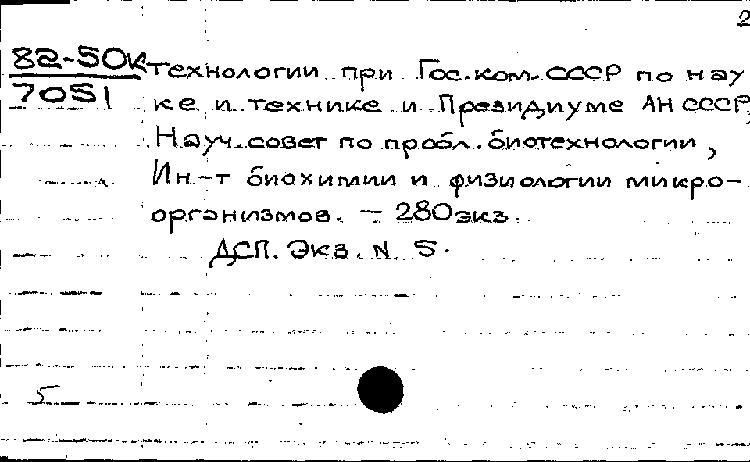 2
82-50к технологии при Гос. ком. СССР по нау
7051 ке и технике и Президиуме АН СССР,
Науч. совет по пробл. биотехнологии,
Ин-т биохимии и физиологии микро-
организмов. – 280 экз.
ДСП. Экз. N 5.
5